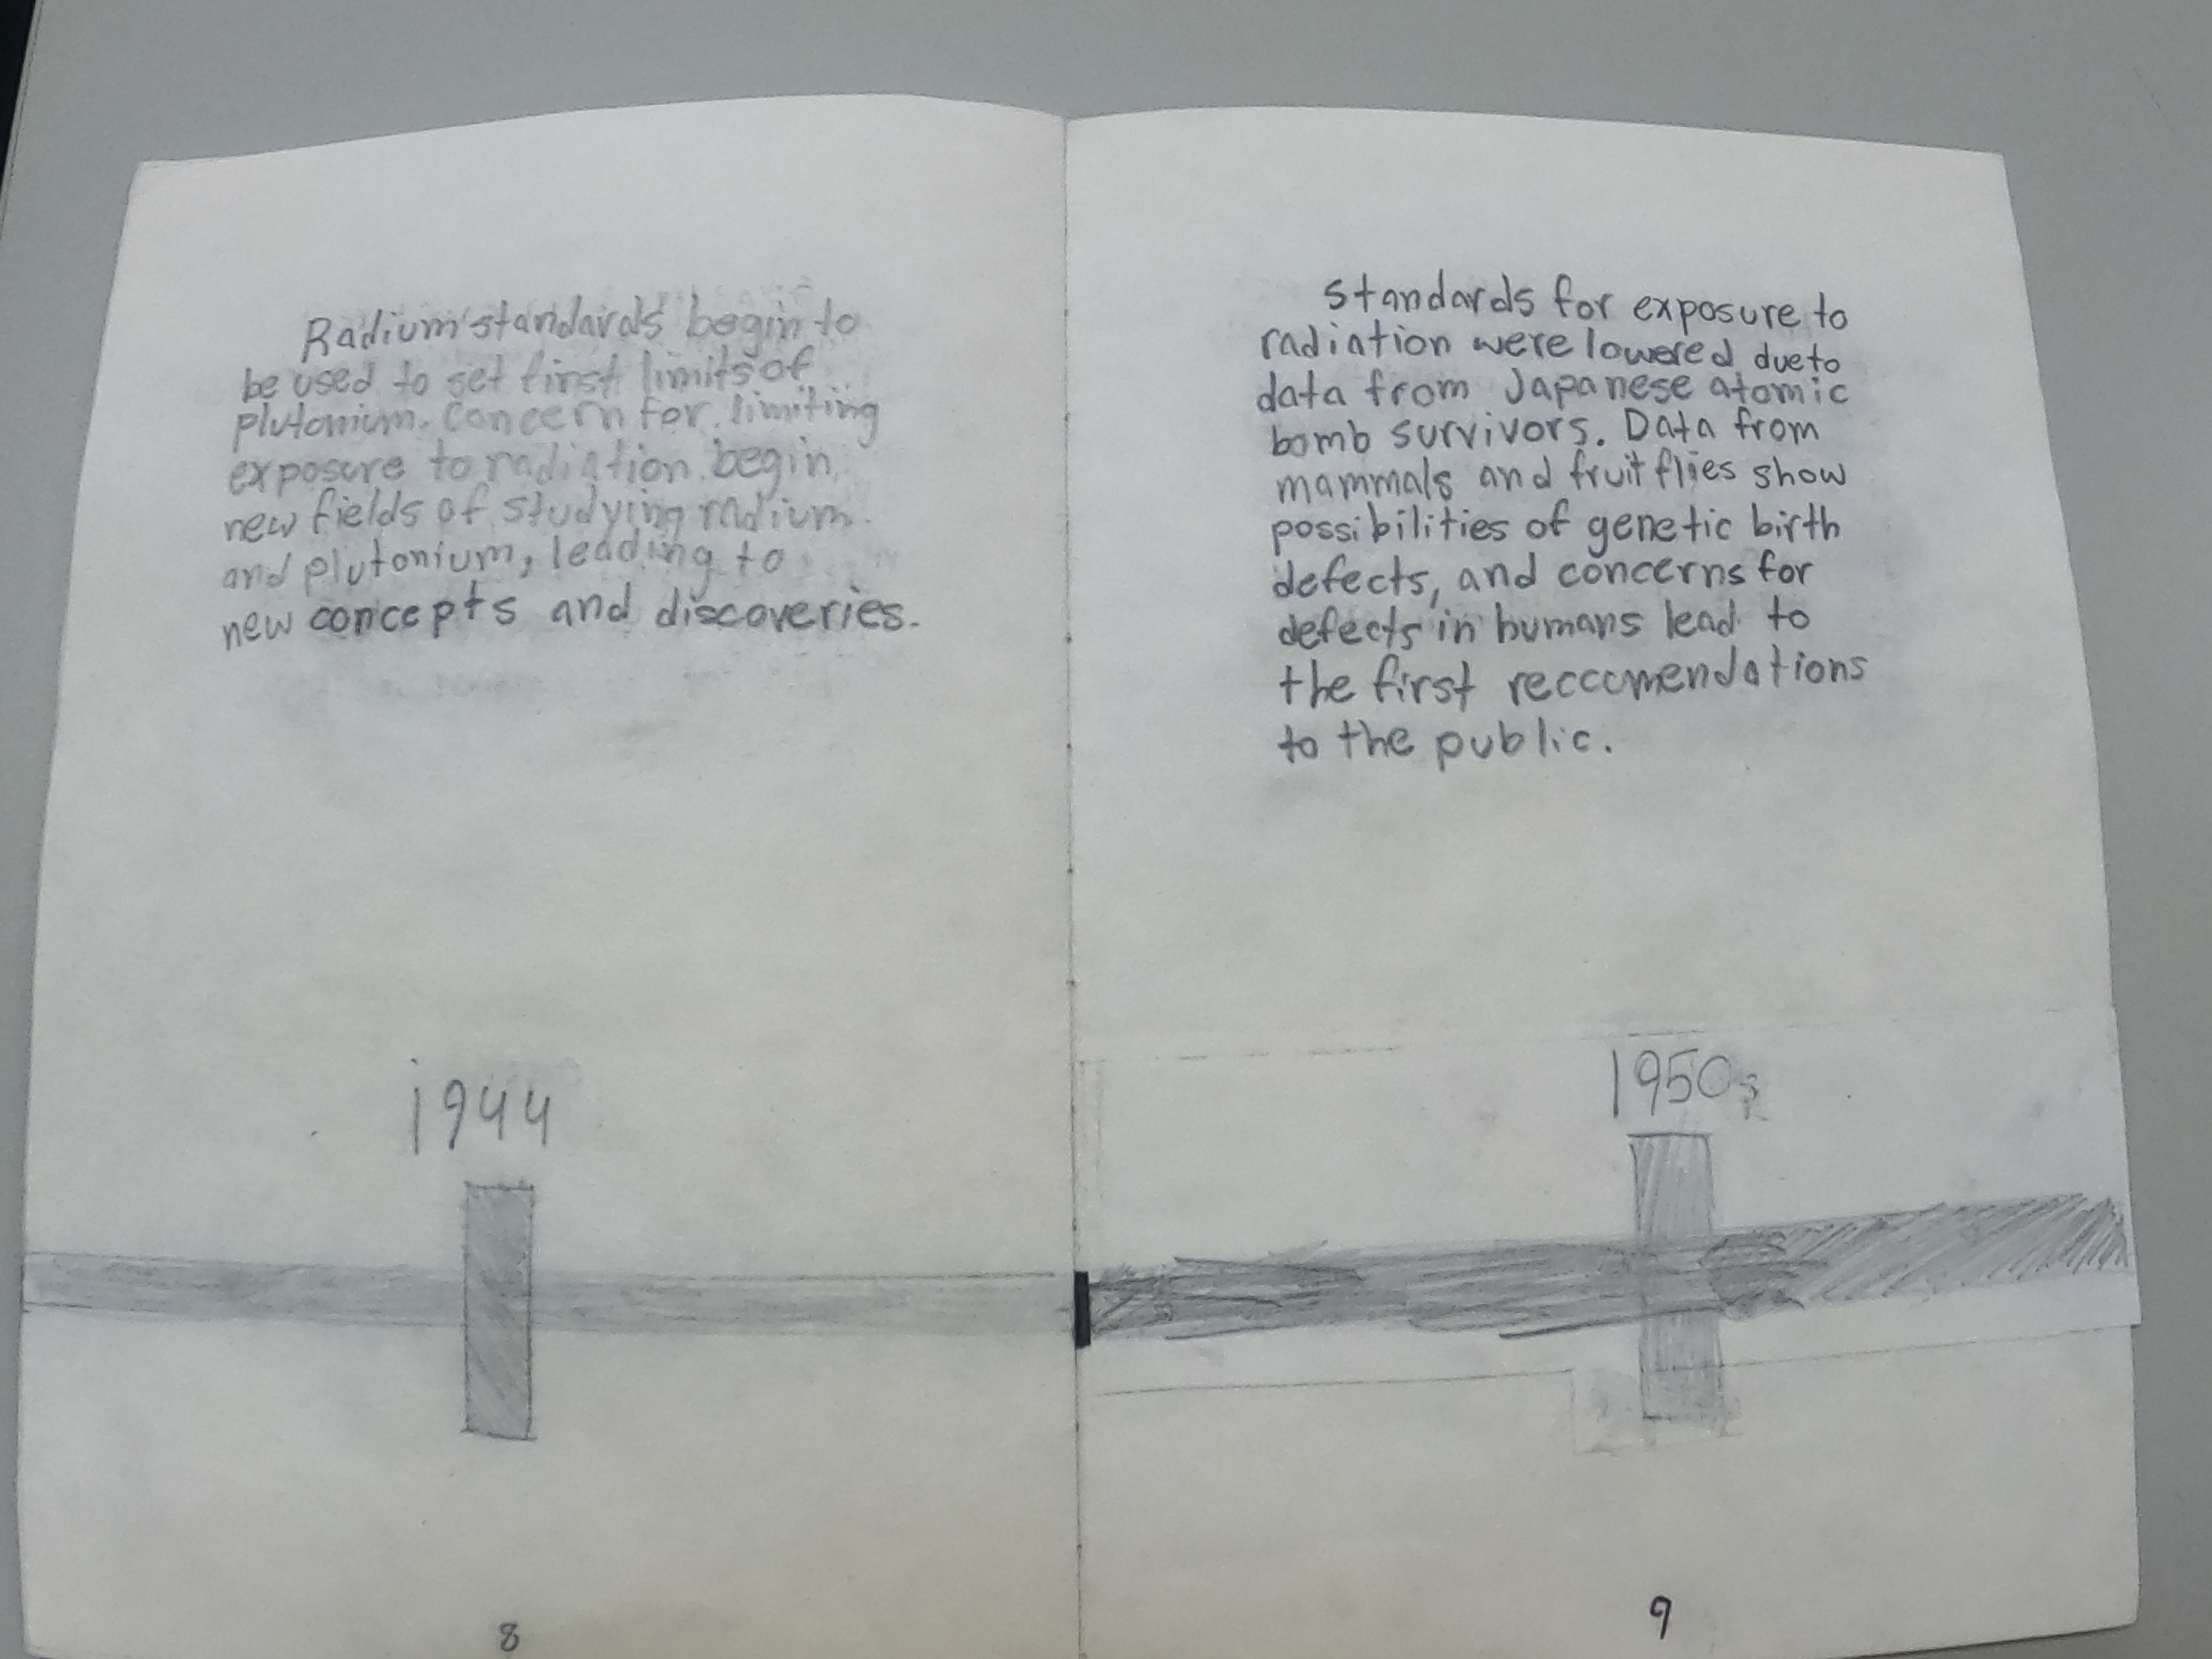 Radium standards begin to
be used to set first limits of
plutonium. Concern for limiting
exposure to radiation begin
new fields of studying radium
and plutonium, leading to
new concepts and discoveries.
1944
8
Standards for exposure to
radiation were lowered due to
data from Japanese atomic
bomb survivors. Data from
mammals and fruit flies show
possibilities of genetic birth
defects, and concerns for
defects in humans lead to
the first reccomendations
to the public.
1950s
9